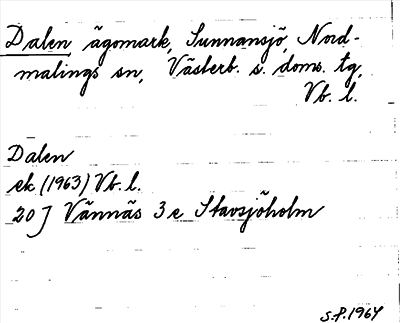 Dalen, ägomark, Sunnansjö, Nord-
malings sn, Västerb. s. doms. tg,
Vb. l.
Dalen
ek (1963) Vb. l.
20 J Vännäs 3 e Stavsjöholm
S.P. 1964